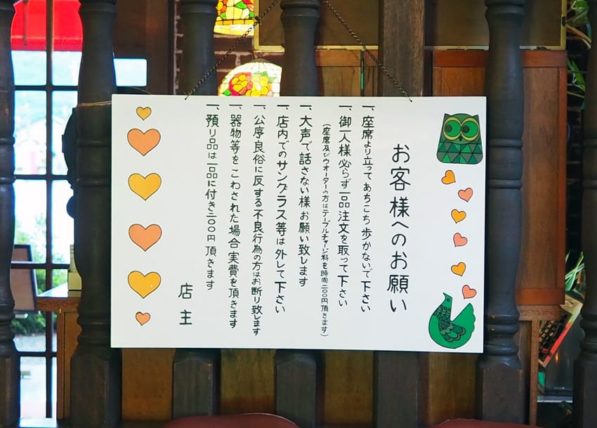 お客様へのお願い
一、座席より立ってあちこち歩かないで下さい
一、御一人様必らず一品注文を取って下さい
(座席及びウオーターの方はテーブルチャージ料を時間二〇〇円頂きます)
一、大声で話さない様お願い致します
一、店内でのサングラス等は外して下さい
一、公序良俗に反する不良行為の方はお断り致します
一、器物等をこわされた場合実費を頂きます
一、預り品は一品に付き二〇〇円頂きます
店主